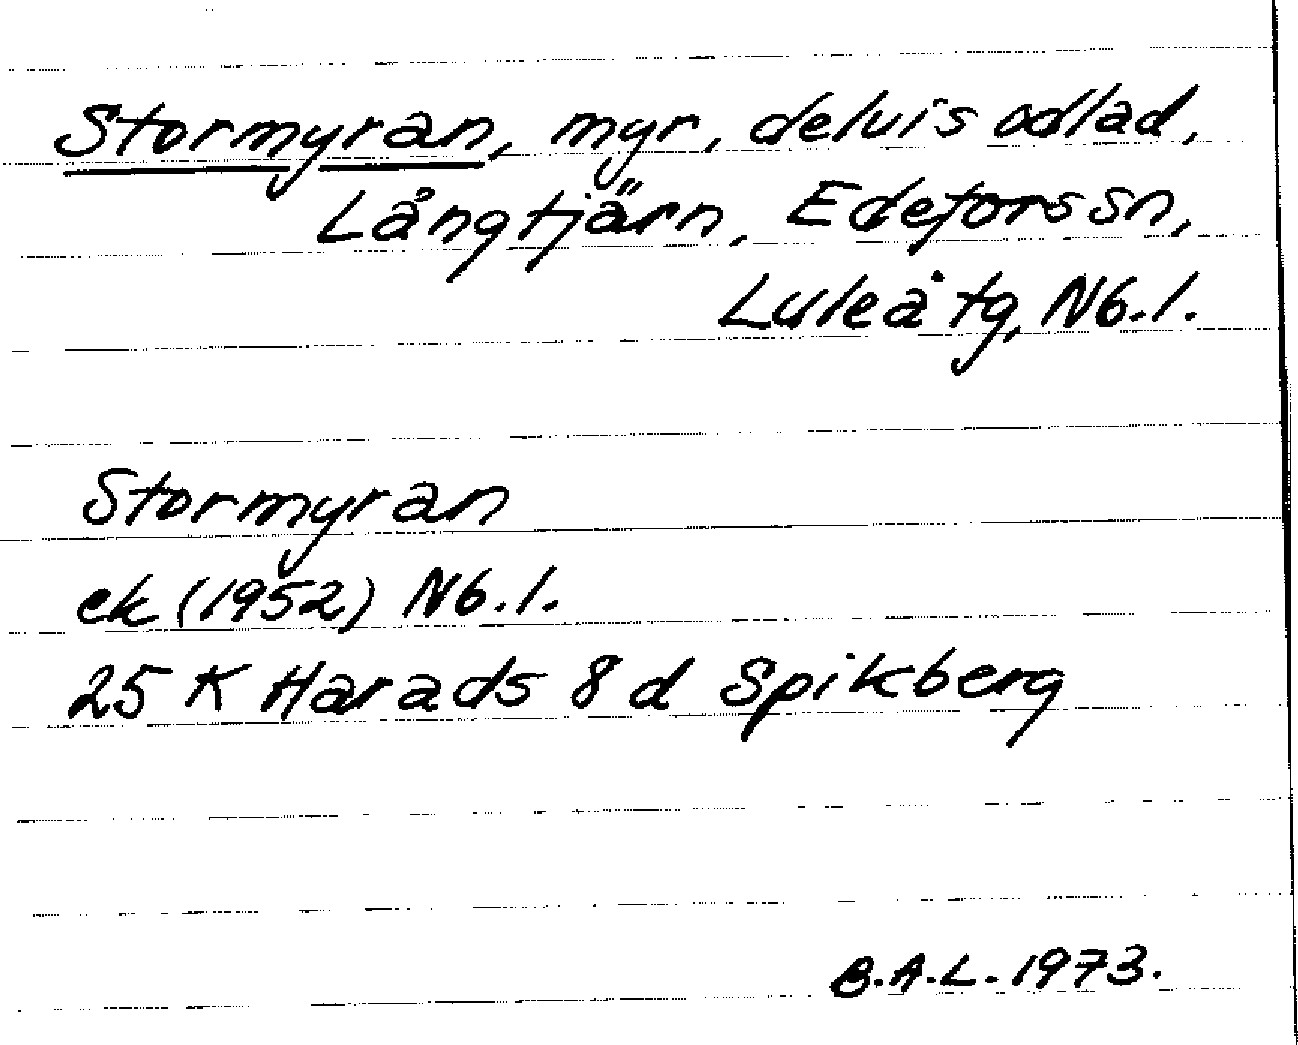 Stormyran, myr, delvis odlad,
Långtjärn, Edefors sn,
Luleå tg, Nb. l.
Stormyran
ek (1952) Nb. l.
25 K Harads 8 d Spikberg
B.A.L. 1973.